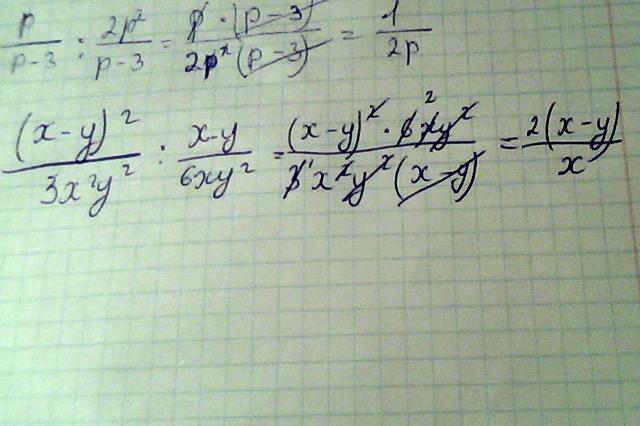 p/(p-3) : 2p²/(p-3) = p·(p-3)/2p²(p-3) = 1/2p
(x-y)²/3x²y² : (x-y)/6xy² = (x-y)²·6²xy²/3¹x²y²(x-y) = 2(x-y)/x